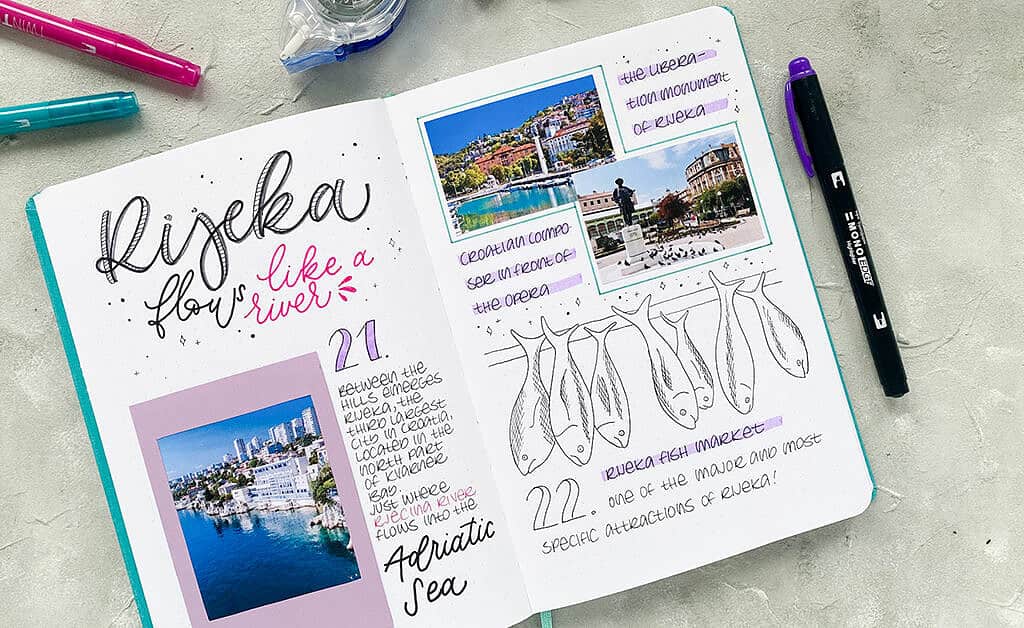 Rijeka
flows like a
river
21.
BETWEEN THE
HILLS EMERGES
RIJEKA, THE
THIRD LARGEST
CITY IN CROATIA,
LOCATED IN THE
NORTH PART
OF KVARNER
BAY.
JUST WHERE
RJEČINA RIVER
FLOWS INTO THE
Adriatic
Sea
THE LIBERA-
TION MONUMENT
OF RIJEKA
CROATIAN COMPO-
SER IN FRONT OF
THE OPERA
RIJEKA FISH MARKET
22. ONE OF THE MAJOR AND MOST
SPECIFIC ATTRACTIONS OF RIJEKA!
MONO EDGE
Highlighter